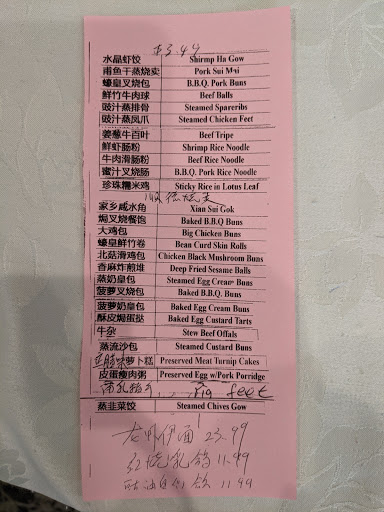 $3.49
水晶虾饺 Shirmp Ha Gow
甫鱼干蒸烧卖 Pork Sui Mai
蠔皇叉烧包 B.B.Q. Pork Buns
鲜竹牛肉球 Beef Balls
豉汁蒸排骨 Steamed Spareribs
豉汁蒸凤爪 Steamed Chicken Feet
姜葱牛百叶 Beef Tripe
鲜虾肠粉 Shrimp Rice Noodle
牛肉滑肠粉 Beef Rice Noodle
蜜汁叉烧肠 B.B.Q. Pork Rice Noodle
珍珠糯米鸡 Sticky Rice in Lotus Leaf
顺德烧卖
家乡咸水角 Xian Sui Gok
焗叉烧餐饱 Baked B.B.Q Buns
大鸡包 Big Chicken Buns
蠔皇鲜竹卷 Bean Curd Skin Rolls
北菇滑鸡包 Chicken Black Mushroom Buns
香麻炸煎堆 Deep Fried Sesame Balls
蒸奶皇包 Steamed Egg Cream Buns
菠萝叉烧包 Baked B.B.Q. Buns
菠萝奶皇包 Baked Egg Cream Buns
酥皮焗蛋挞 Baked Egg Custard Tarts
牛杂 Stew Beef Offals
蒸流沙包 Steamed Custard Buns
腊味萝卜糕 Preserved Meat Turnip Cakes
皮蛋瘦肉粥 Preserved Egg w/Pork Porridge
南乳猪手 Pig feet
蒸韭菜饺 Steamed Chives Gow
龙虾伊面 23.99
红烧乳鸽 11.99
豉油皇 11.99